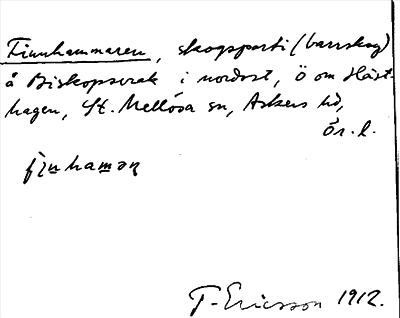 Finnhammaren, skogsparti (barrskog)
å Biskopsvrak i nordost, Ö om Häst-
hagen, St. Mellösa sn, Askers hd,
Ör. l.
T. Ericsson 1912.